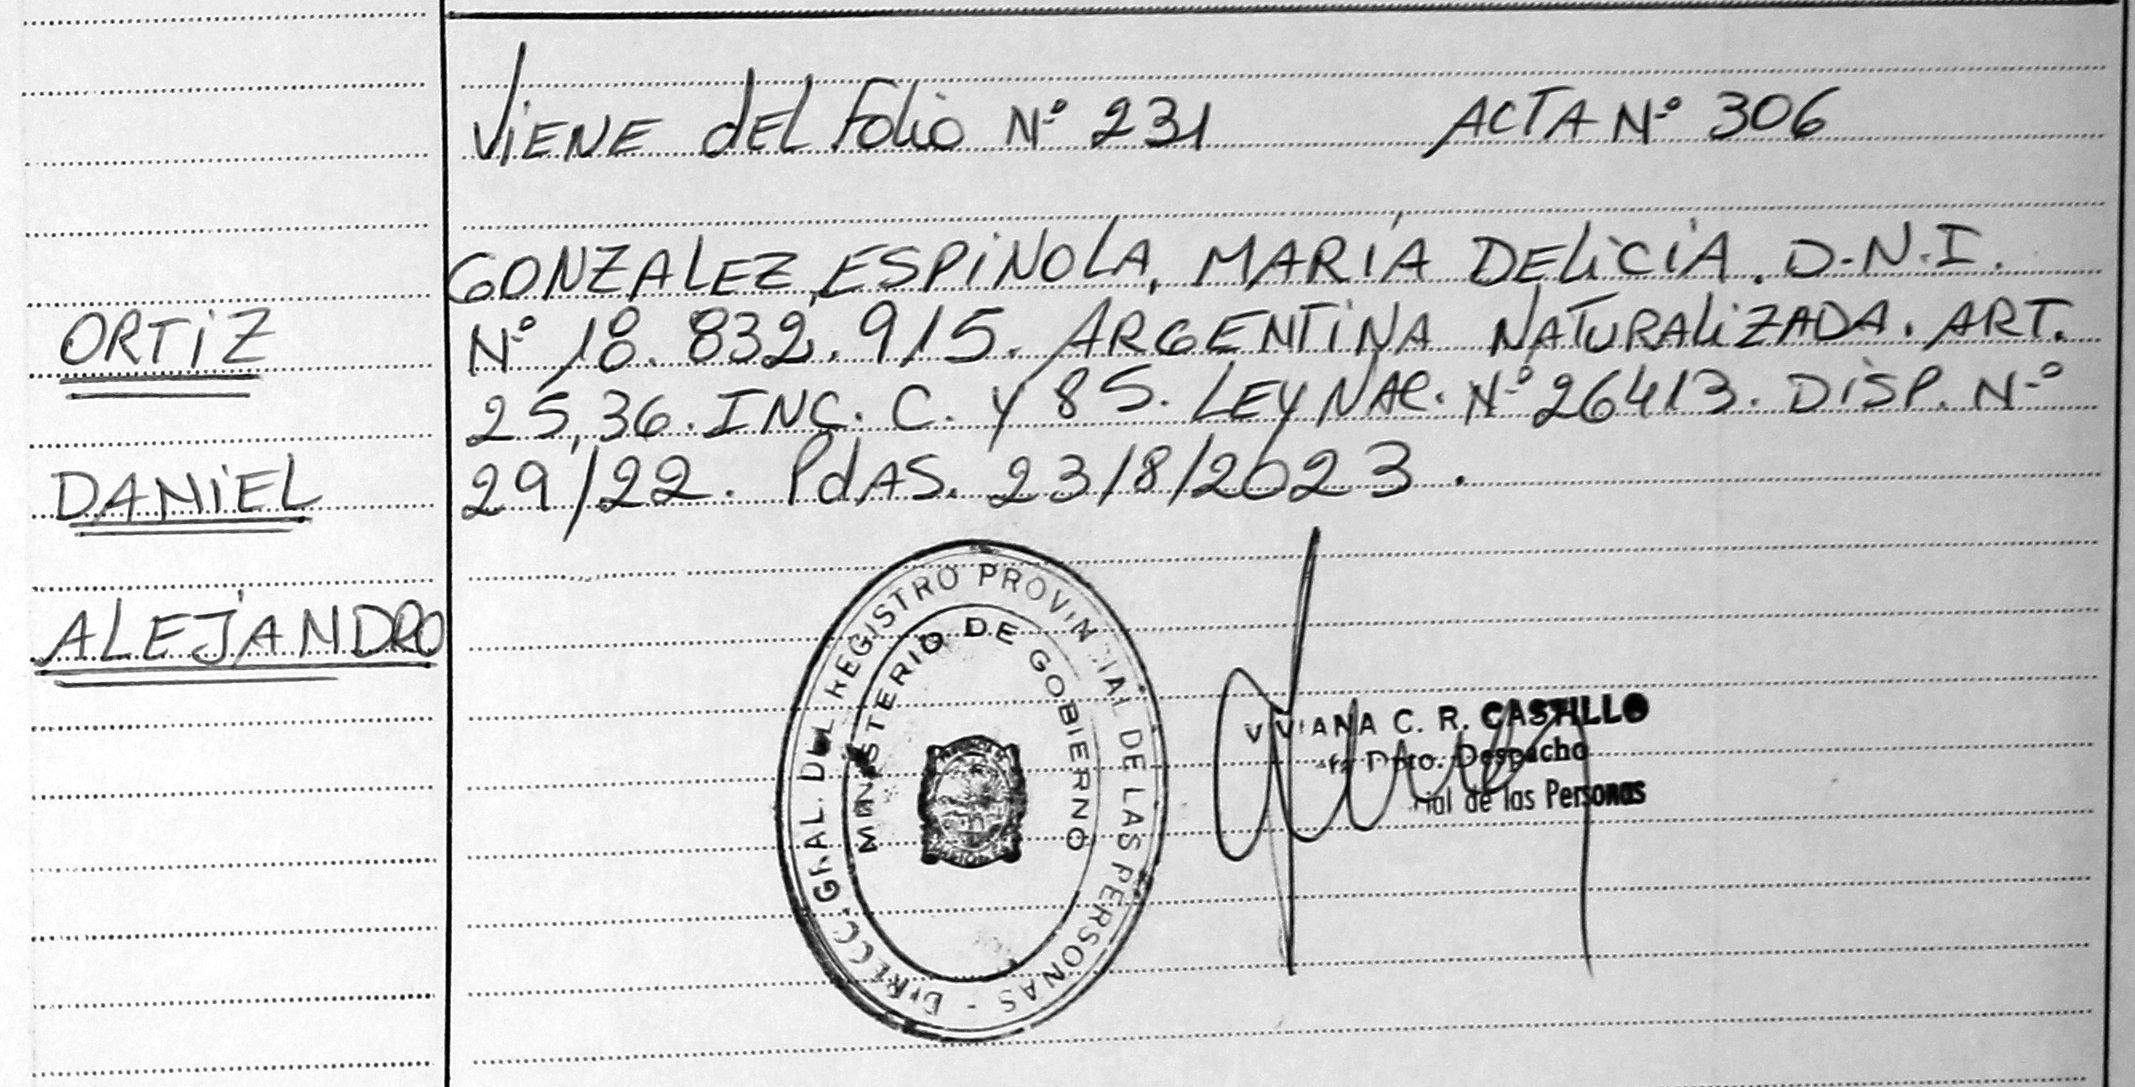 ORTIZ
DANIEL
ALEJANDRO
VIENE del Folio Nº 231 ACTA Nº 306
GONZALEZ ESPINOLA, MARÍA DELICIA. D.N.I.
Nº 18.832.915. ARGENTINA NATURALIZADA. ART.
25, 36. INC. C. Y 85. LEY NAC. Nº 26413. DISP. Nº
29/22. PdAS. 23/8/2023.
DIRECC. GRAL. DEL REGISTRO PROVINCIAL DE LAS PERSONAS -
MINISTERIO DE GOBIERNO
VIVIANA C. R. CASTILLO
Dpto. Despacho
de las Personas